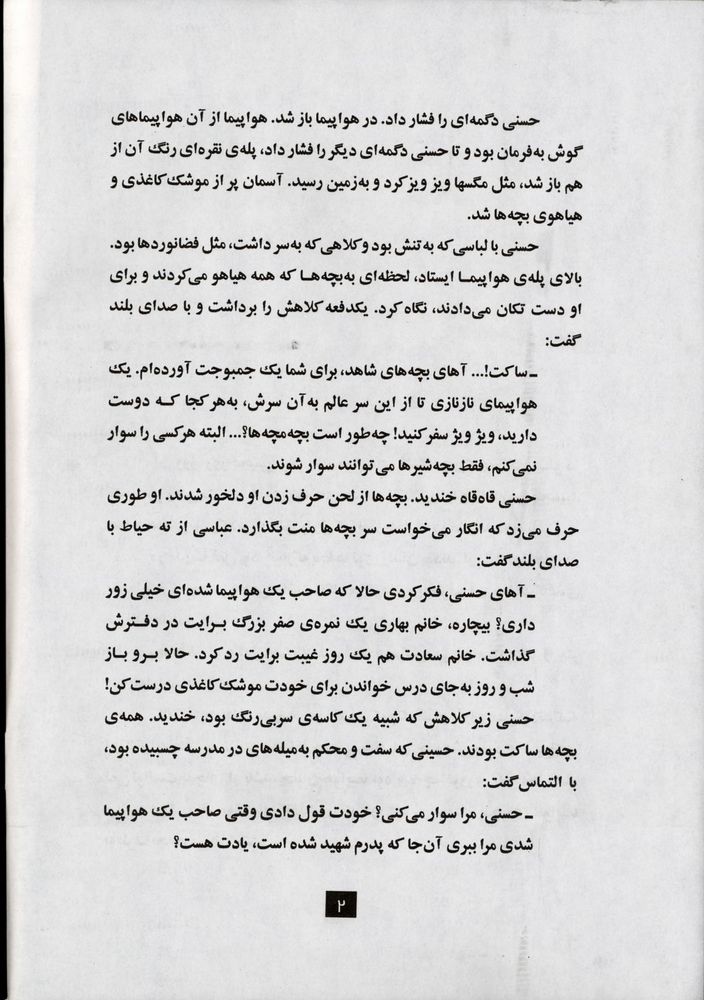 حسنی دگمه‌ای را فشار داد. در هواپیما باز شد. هواپیما از آن هواپیماهای
گوش به‌فرمان بود و تا حسنی دگمه‌ای دیگر را فشار داد، پله‌ی نقره‌ای رنگ آن از
هم باز شد، مثل مگسها ویز ویز کرد و به‌زمین رسید. آسمان پر از موشک کاغذی و
هیاهوی بچه‌ها شد.
حسنی با لباسی که به تنش بود و کلاهی که به‌سر داشت، مثل فضانوردها بود.
بالای پله‌ی هواپیمـا ایستاد، لحظه‌ای به‌بچه‌هـا که همه هیاهو می‌کردند و برای
او دست تکان می‌دادند، نگاه کرد. یکدفعه کلاهش را برداشت و با صدای بلند
گفت:
ـ ساکت!... آهای بچه‌های شاهد، برای شما یک جمبوجت آورده‌ام. یک
هواپیمای نازنازی تا از این سر عالم به‌آن سرش، به‌هر کجا کـه دوست
دارید، ویژ ویژ سفر کنید! چه‌طور است بچه‌مچه‌ها؟... البته هرکسی را سوار
نمی‌کنم، فقط بچه‌شیرها می‌توانند سوار شوند.
حسنی قاه‌قاه خندید. بچه‌ها از لحن حرف زدن او دلخور شدند. او طوری
حرف می‌زد که انگار می‌خواست سر بچه‌ها منت بگذارد. عباسی از ته حیاط با
صدای بلند گفت:
ـ آهای حسنی، فکر کردی حالا که صاحب یک هواپیما شده‌ای خیلی زور
داری؟ بیچاره، خانم بهاری یک نمره‌ی صفر بزرگ بـرایت در دفـترش
گذاشت. خانم سعادت هم یک روز غیبت برایت رد کرد. حالا بـرو بـاز
شب و روز به‌جای درس خواندن برای خودت موشک کاغذی درست کن!
حسنی زیر کلاهش که شبیه یک کاسه‌ی سربی‌رنگ بود، خندید. همه‌ی
بچه‌ها ساکت بودند. حسینی که سفت و محکم به‌میله‌های در مدرسه چسبیده بود،
با التماس گفت:
ـ حسنی، مرا سوار می‌کنی؟ خودت قول دادی وقتی صاحب یک هواپیما
شدی مرا ببری آن‌جا که پدرم شهید شده است، یادت هست؟
۲